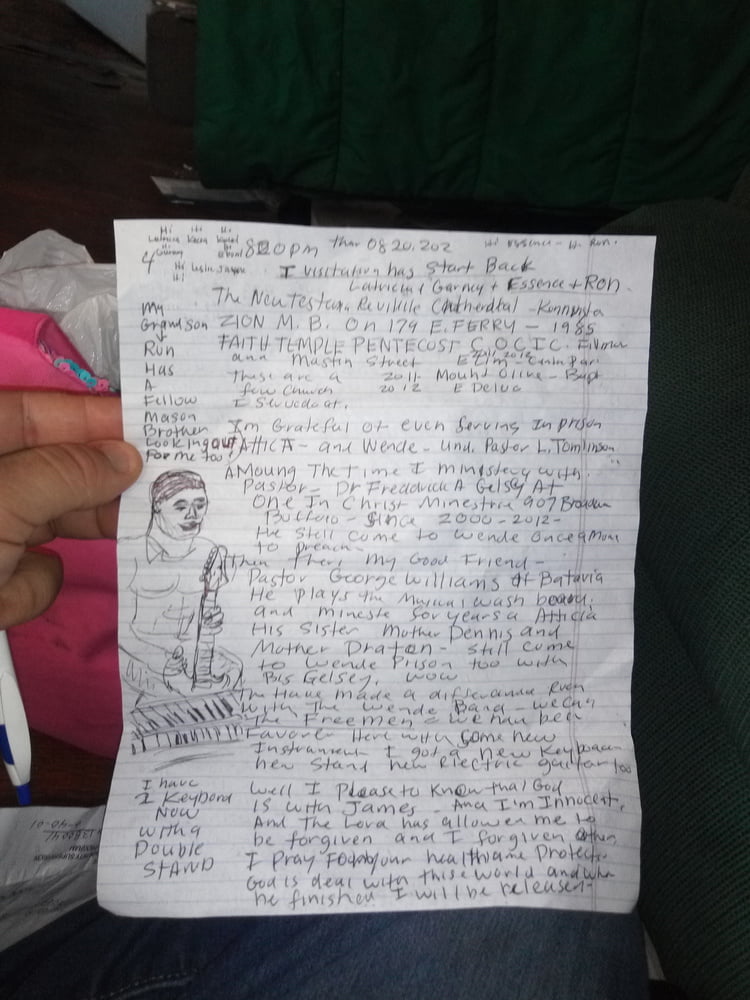 Hi Hi Hi
Hi
8:20PM thur 08.20.202 Hi Essence - Hi Ron.
Hi
Hi
I visitation has Start Back
Latricia & Garney + Essence + Ron
The New Testam Revikile Cathedral -
ZION M.B. On 179 E. FERRY - 1985
FAITH TEMPLE PENTECOST C.O.C.I.C.
and Mastin Street
These are a 2011 Mount Olive - Bapt
few Church 2012 E Delva
I Served at.
My
Grandson
Ron
Has
A
Fellow
Mason
Brother
Looking out
For me too!
Im Grateful of even Serving In prison
Attica - and Wende - Und. Pastor L, Tomlinson
AMoung The time I ministery with.
Pastor - Dr Frederick A Gelsey At
One In Christ Minestrie 907 Broadw
Buffalo - Since 2000 - 2012 -
He still come to Wende Once a Mon
to preach -
Then There My Good Friend -
Pastor George Williams of Batavia
He plays the Musical wash board.
and ministe for years a Atticia
His Sister Mother Dennis and
Mother Draton - still come
to Wende Prison too with
Bis Gelsey. wow
The Have made a differance Even
with The Wende Band - we can
The Freemen - we hav been
Favored Here with Some new
Instrument I got a new Keyboard
new Stand new Electric guitar too
I have
2 Keybord
Now
with a
Double
STAND
Well I Please to Know that God
IS with James - And I'm Innocent,
And The Lord has allowed me to
be forgiven and I forgiven Others
I pray For your health and Protectio
God is deal with this world and when
he finished I will be released -